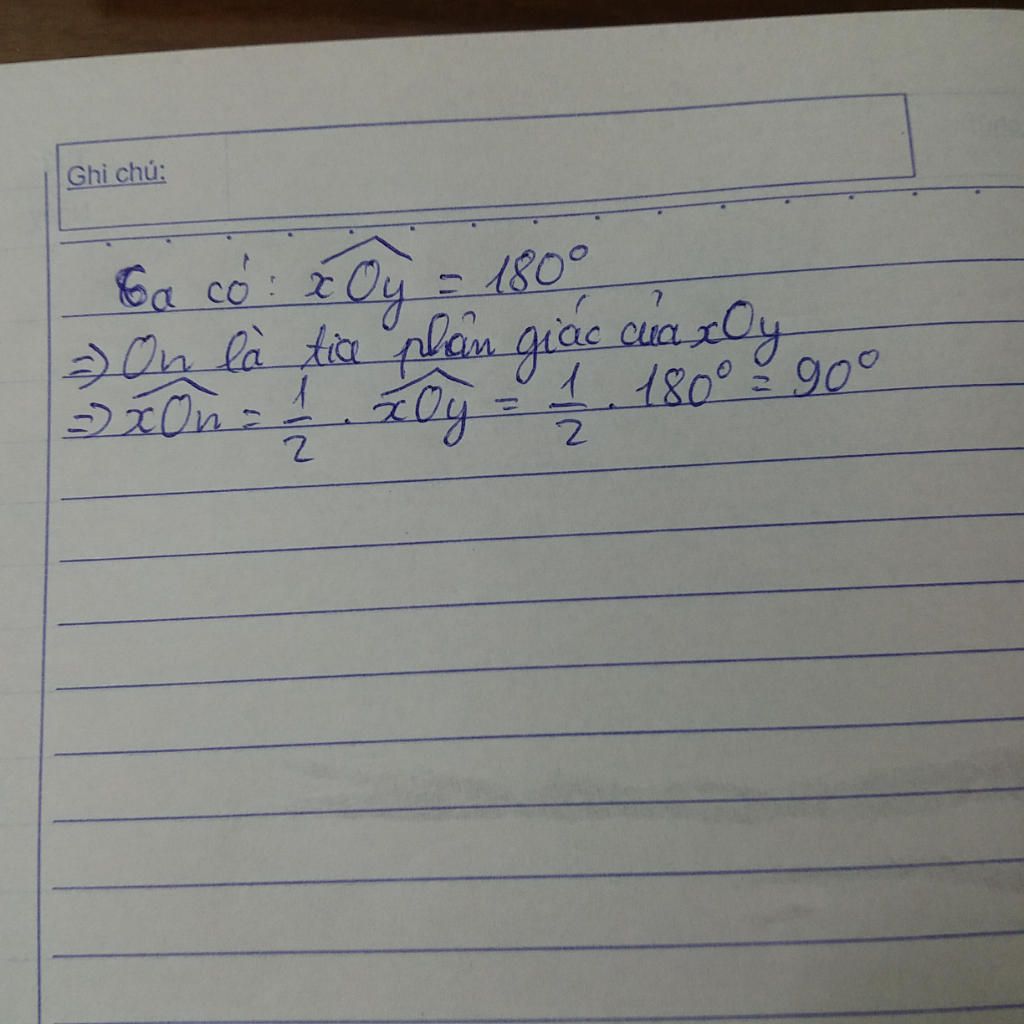 Ghi chú:
Ta có: $\widehat{xOy}$ = 180°
=> On là tia phân giác của xOy
=> $\widehat{xOn}$ = $\frac{1}{2}$ . $\widehat{xOy}$ = $\frac{1}{2}$ . 180° = 90°